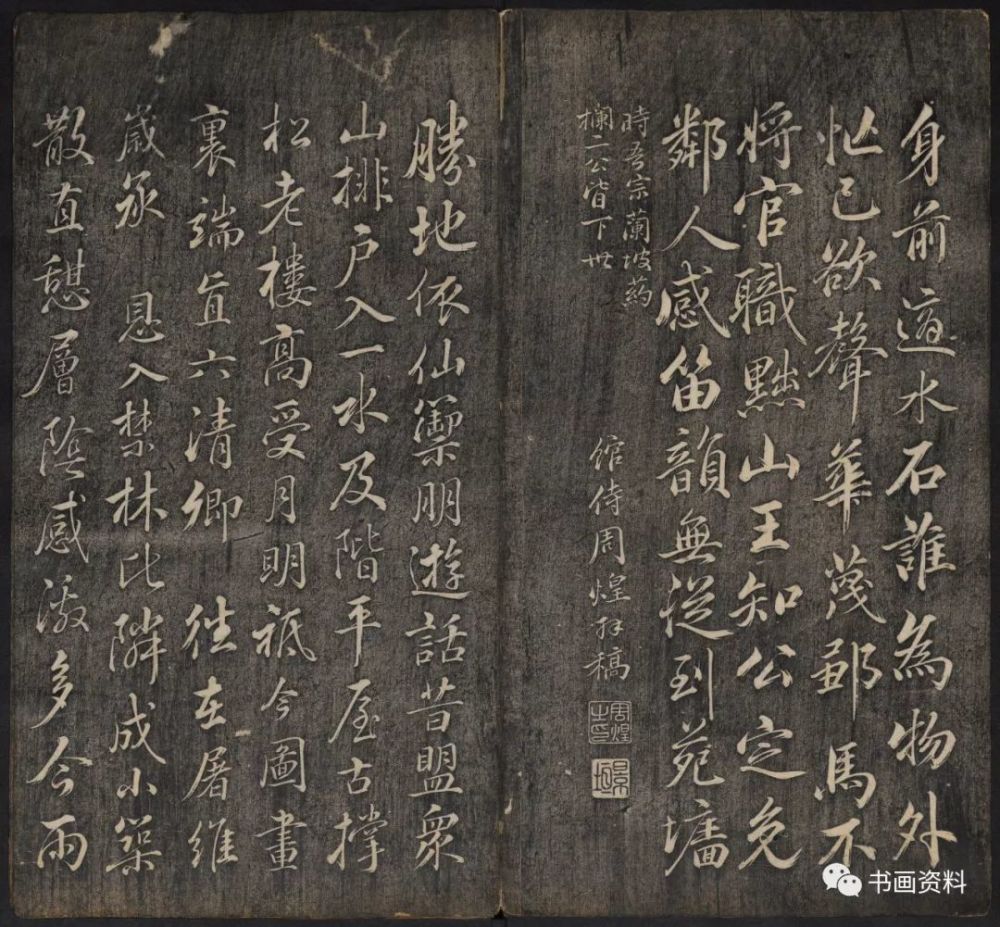 身前適水石誰為物外
忙已欲聲華蔑鄀馬不
將官職黜山王知公定免
鄰人感笛韻無從到苑墻
時吾宗蘭坡葯
欄二公皆下世
館侍周煌拜稿
周煌之印
景垣
勝地依仙籞朋遊話昔盟眾
山排戶入一水及階平屋古撐
松老樓高受月明祇今圖畫
裏端直六清卿 往在屠維
歲承 恩入禁林比隣成小築
散直憩層陰感激多今雨
书画资料